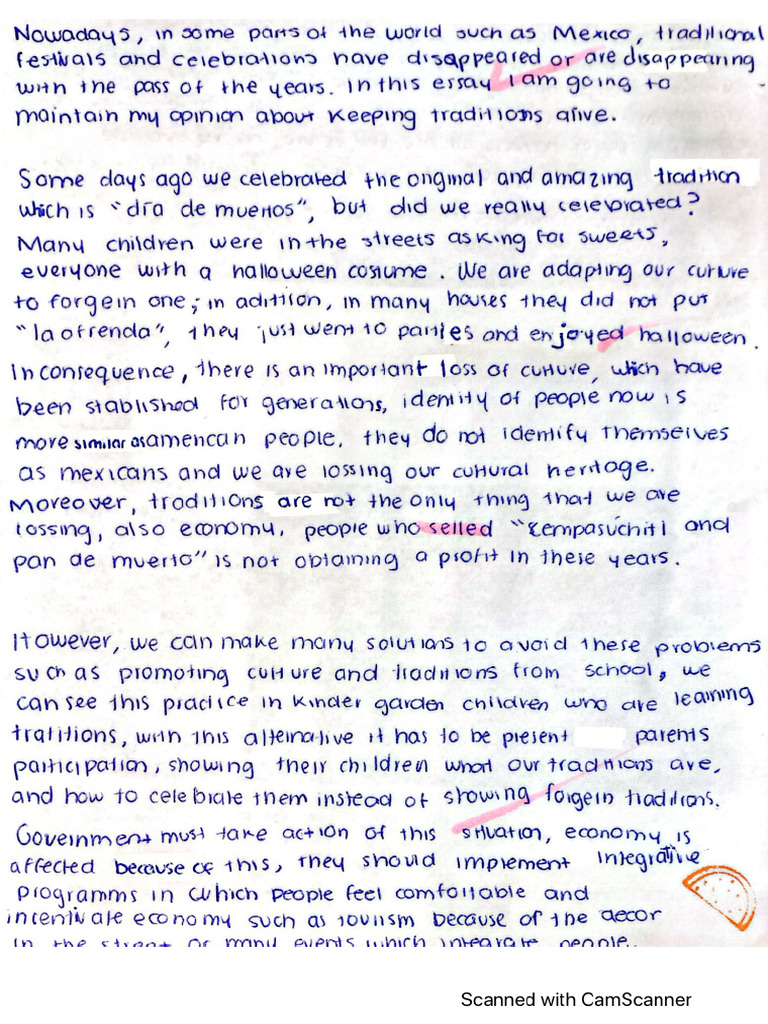 Nowadays, in some parts of the world such as Mexico, traditional
festivals and celebrations have disappeared or are disappearing
with the pass of the years. In this essay I am going to
maintain my opinion about keeping traditions alive.
Some days ago we celebrated the original and amazing tradition
which is "día de muertos", but did we really celebrated?
Many children were in the streets asking for sweets,
everyone with a halloween costume. We are adapting our culture
to forgein one; in adittion, in many houses they did not put
"la ofrenda", they just went to parties and enjoyed halloween.
In consequence, there is an important loss of culture, which have
been stablished for generations, identity of people now is
more similar as american people, they do not identify themselves
as mexicans and we are lossing our cultural heritage.
Moreover, traditions are not the only thing that we are
lossing, also economy, people who selled "Cempasúchitl and
pan de muerto" is not obtaining a profit in these years.
However, we can make many solutions to avoid these problems
such as promoting culture and traditions from school, we
can see this practice in kinder garden children who are learning
tratitions, with this alternative it has to be present parents
participation, showing their children what our traditions are,
and how to celebrate them instead of showing forgein traditions.
Government must take action of this situation, economy is
affected because of this, they should implement integrative
programms in which people feel comfortable and
incentivate economy such as tourism because of the decor
in the street or many events which integrate people.
Scanned with CamScanner